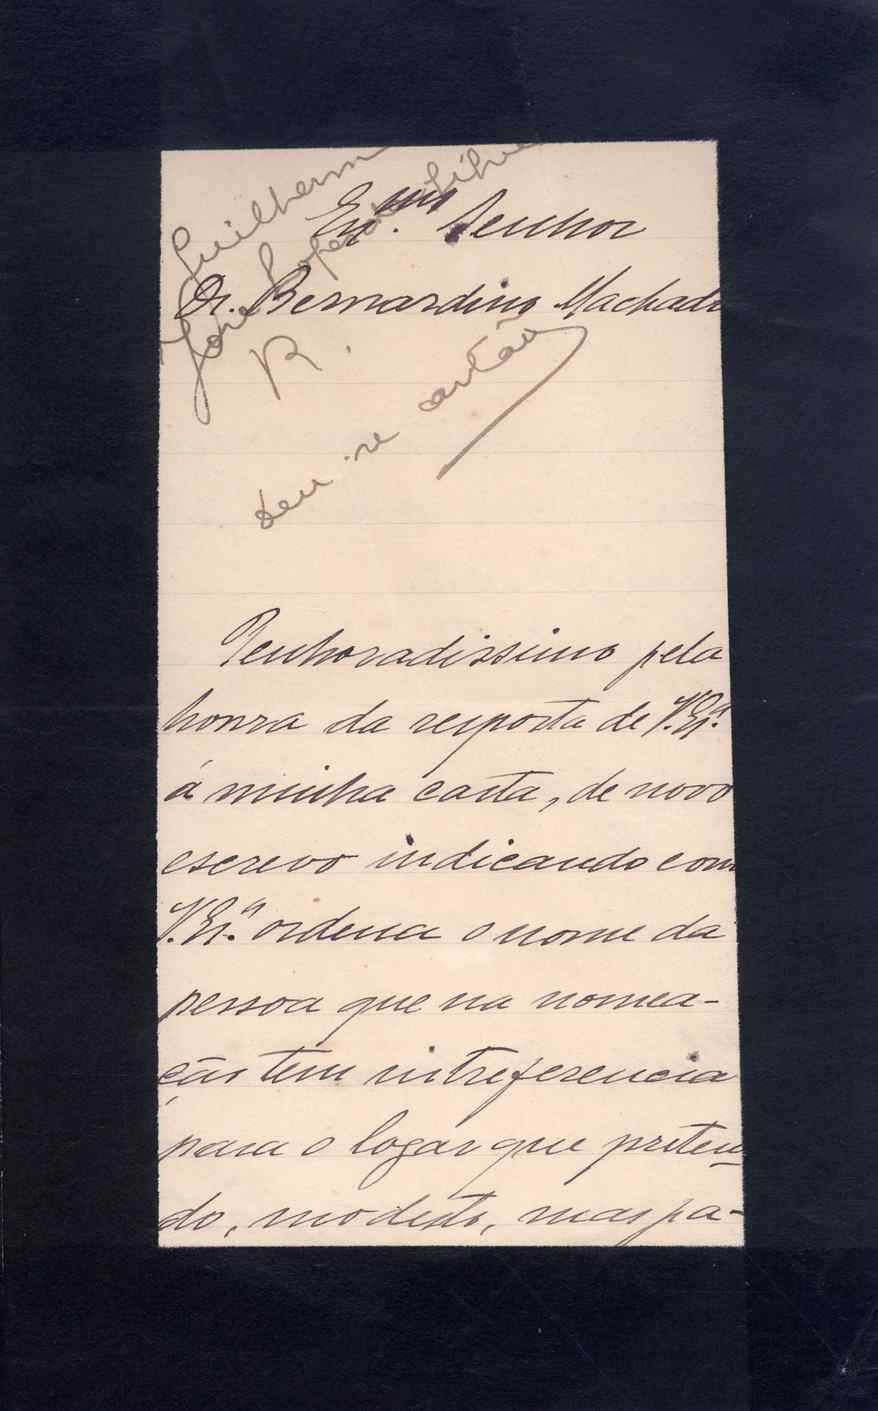 Guilherme
José Lopes da Silva
R.
deu-se cartão
Ex.mo Senhor
Dr. Bernardino Machado
Penhoradissimo pela
honra da resposta de V. Ex.ª
á minha carta, de novo
escrevo indicando como
V. Ex.ª ordena o nome da
pessoa que na nomea-
ção tem intreferencia
para o logar que preten-
do, modesto, mas pa-